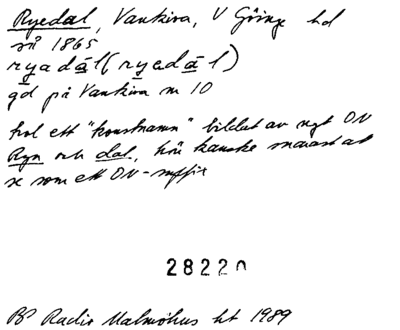 Ryedal, Vankiva, V Göinge hd
nä 1865
ryadál (ryedál)
gd på Vankiva nr 10
trol ett "konstnamn" bildat av ngt ON
Ryn och dal, här kanske snarast at
se som ett ON-suffix
28220
Radio Malmöhus ht 1989